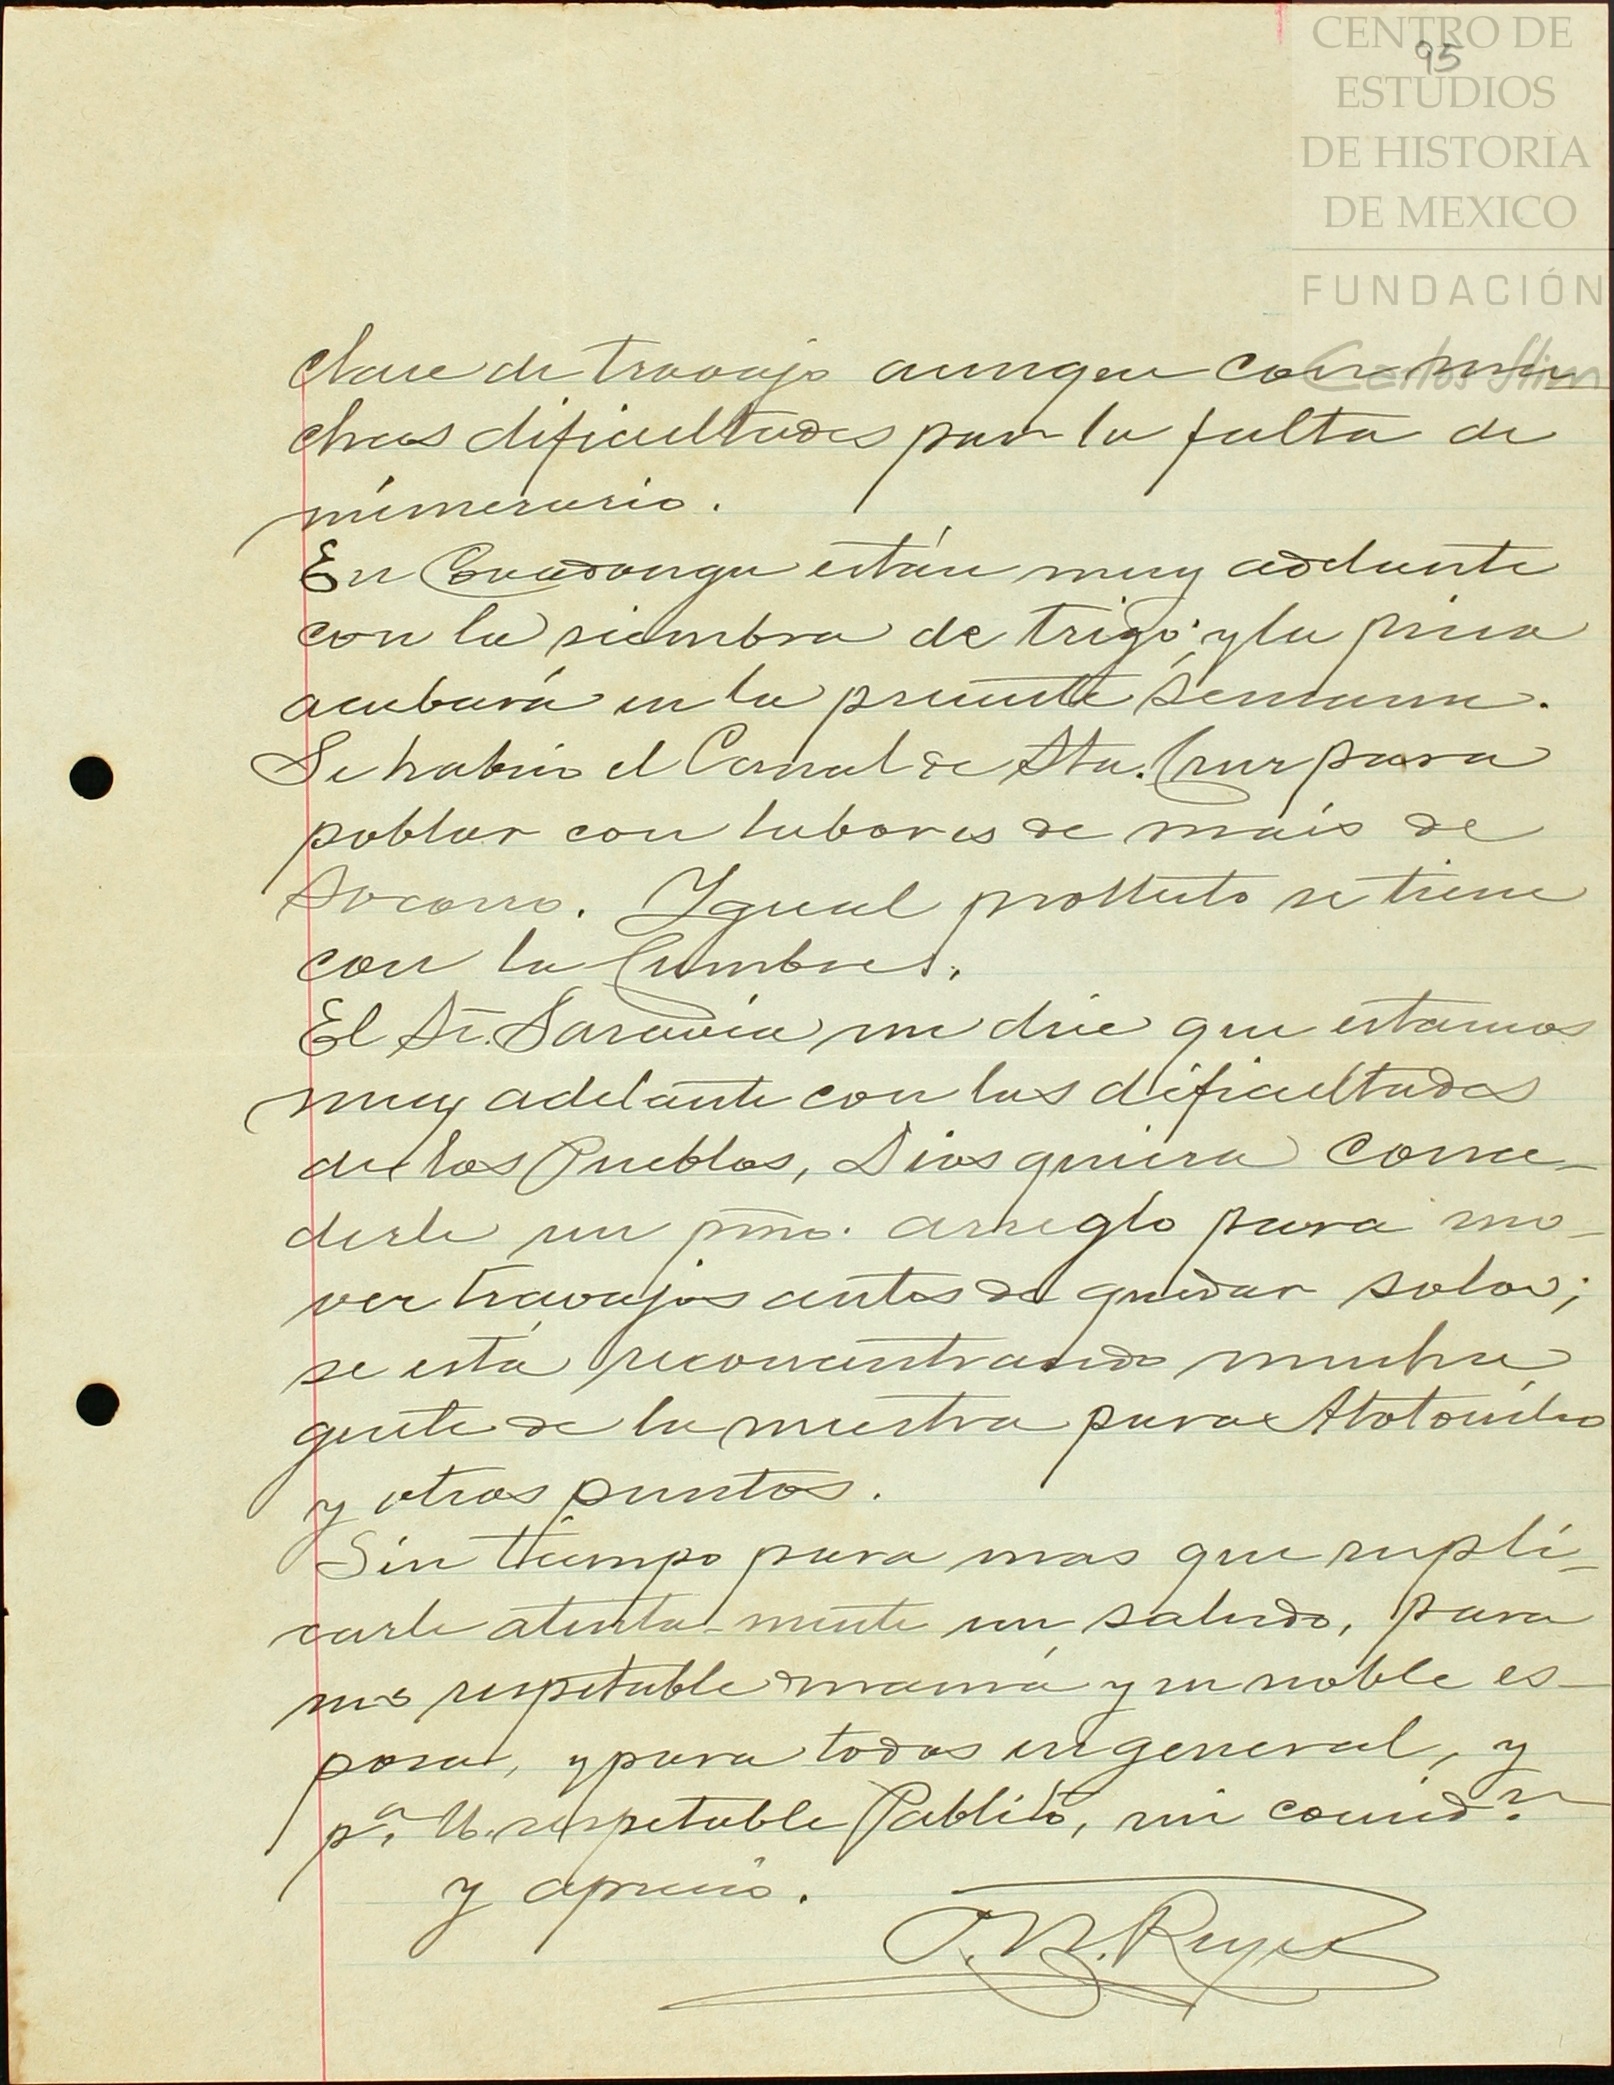 CENTRO DE
95
ESTUDIOS
DE HISTORIA
DE MEXICO
FUNDACIÓN
Carlos Slim
clase de travajo aunque con mu
chas dificultades por la falta de
númerario.
En Covadonga están muy adelante
con la siembra de trigo; y la
acabará en la presente semana.
Se habrio el Canal de Sta. Cruz para
poblar con labores de maís de
Socorro. Igual se tiene
con la Cumbre.
El Sr. Saravia me dice que estamos
muy adelante con las dificultades
de los Pueblos, Dios quiera conce-
derle un pmo. arreglo para mo-
ver travajos antes de quedar solos;
se está reconcentrando mucha
gente de la nuestra para Atotonilco
y otros puntos.
Sin tiempo para mas que supli-
carle atenta-mente un saludo, para
mi respetable mamá y su noble es-
posa, y para todos en general, y
pa. U. respetable Pablito, mi
y aprecio.
Reyes